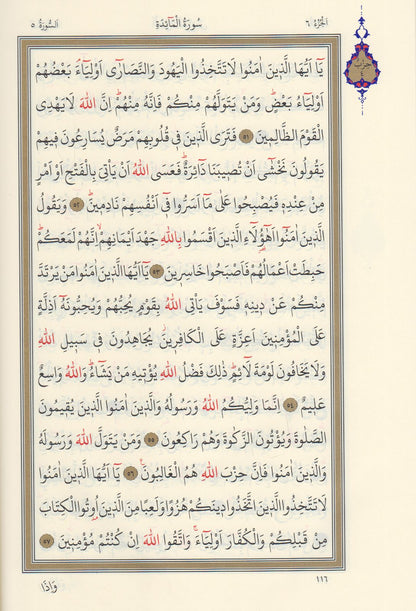 الجزء ٦ سورة المائدة السورة ٥
يَٓا اَيُّهَا الَّذ۪ينَ اٰمَنُوا لَا تَتَّخِذُوا الْيَهُودَ وَالنَّصَارٰٓى اَوْلِيَٓاءَۢ بَعْضُهُمْ
اَوْلِيَٓاءُ بَعْضٍۜ وَمَنْ يَتَوَلَّهُمْ مِنْكُمْ فَاِنَّهُ مِنْهُمْۜ اِنَّ اللّٰهَ لَا يَهْدِي
الْقَوْمَ الظَّالِم۪ينَ ٥١ فَتَرَى الَّذ۪ينَ ف۪ي قُلُوبِهِمْ مَرَضٌ يُسَارِعُونَ ف۪يهِمْ
يَقُولُونَ نَخْشٰٓى اَنْ تُص۪يبَنَا دَٓائِرَةٌۜ فَعَسَى اللّٰهُ اَنْ يَأْتِيَ بِالْفَتْحِ اَوْ اَمْرٍ
مِنْ عِنْدِه۪ فَيُصْبِحُوا عَلٰى مَٓا اَسَرُّوا ف۪ٓي اَنْفُسِهِمْ نَادِم۪ينَۜ ٥٢ وَيَقُولُ
الَّذ۪ينَ اٰمَنُٓوا اَهٰٓؤُ۬لَٓاءِ الَّذ۪ينَ اَقْسَمُوا بِاللّٰهِ جَهْدَ اَيْمَانِهِمْۙ اِنَّهُمْ لَمَعَكُمْۜ
حَبِطَتْ اَعْمَالُهُمْ فَاَصْبَحُوا خَاسِر۪ينَ ٥٣ يَٓا اَيُّهَا الَّذ۪ينَ اٰمَنُوا مَنْ يَرْتَدَّ
مِنْكُمْ عَنْ د۪ينِه۪ فَسَوْفَ يَأْتِي اللّٰهُ بِقَوْمٍ يُحِبُّهُمْ وَيُحِبُّونَهُٓۙ اَذِلَّةٍ
عَلَى الْمُؤْمِن۪ينَ اَعِزَّةٍ عَلَى الْكَافِر۪ينَۘ يُجَاهِدُونَ ف۪ي سَب۪يلِ اللّٰهِ
وَلَا يَخَافُونَ لَوْمَةَ لَٓائِمٍۜ ذٰلِكَ فَضْلُ اللّٰهِ يُؤْت۪يهِ مَنْ يَشَٓاءُۜ وَاللّٰهُ وَاسِعٌ
عَل۪يمٌ ٥٤ اِنَّمَا وَلِيُّكُمُ اللّٰهُ وَرَسُولُهُ وَالَّذ۪ينَ اٰمَنُوا الَّذ۪ينَ يُق۪يمُونَ
الصَّلٰوةَ وَيُؤْتُونَ الزَّكٰوةَ وَهُمْ رَاكِعُونَ ٥٥ وَمَنْ يَتَوَلَّ اللّٰهَ وَرَسُولَهُ
وَالَّذ۪ينَ اٰمَنُوا فَاِنَّ حِزْبَ اللّٰهِ هُمُ الْغَالِبُونَ۟ ٥٦ يَٓا اَيُّهَا الَّذ۪ينَ اٰمَنُوا
لَا تَتَّخِذُوا الَّذ۪ينَ اتَّخَذُوا د۪ينَكُمْ هُزُوًا وَلَعِبًا مِنَ الَّذ۪ينَ اُو۫تُوا الْكِتَابَ
مِنْ قَبْلِكُمْ وَالْكُفَّارَ اَوْلِيَٓاءَۚ وَاتَّقُوا اللّٰهَ اِنْ كُنْتُمْ مُؤْمِن۪ينَ ٥٧
حزب
١١٦
وَاِذَا